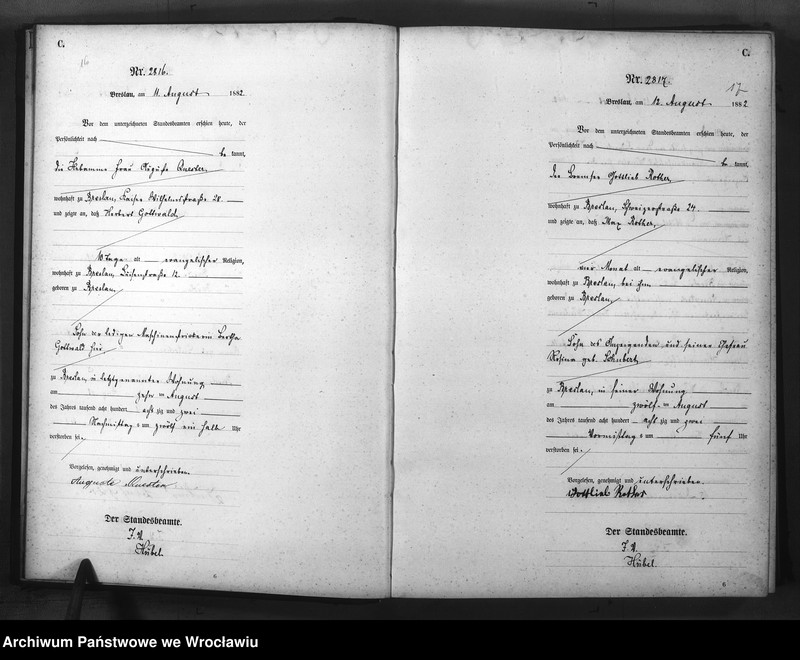 C.
16
Nr. 2816.
Breslau, am 11 August 1882.
Vor dem unterzeichneten Standesbeamten erschien heute, der
Persönlichkeit nach
be kannt,
die Hebamme Frau Auguste
wohnhaft zu Breslau, Kaiser Wilhelmstraße 28.
und zeigte an, daß Herbert Gottwald
10 Tage alt evangelischer Religion,
wohnhaft zu Breslau, 12.
geboren zu Breslau,
Sohn der ledigen Bertha
Gottwald hier
zu Breslau, in letztgenannter Wohnung
am zehn ten August
des Jahres tausend acht hundert acht zig und zwei
Nachmittag s um zwölf ein halb Uhr
verstorben sei.
Vorgelesen, genehmigt und unterschrieben
Auguste
Der Standesbeamte.
J. V.
Hübel.
6
C.
17
Nr. 2817.
Breslau, am 12. August 1882
Vor dem unterzeichneten Standesbeamten erschien heute, der
Persönlichkeit nach
be kannt,
der Bremser Gottlieb Rother,
wohnhaft zu Breslau, Schweizerstraße 24.
und zeigte an, daß Max Rother,
vier Monat alt evangelischer Religion,
wohnhaft zu Breslau, bei ihm
geboren zu Breslau,
Sohn des Anzeigenden und seiner Ehefrau
Rosina geb. Schubert,
zu Breslau, in seiner Wohnung
am zwölf ten August
des Jahres tausend acht hundert acht zig und zwei
Vormittag s um fünf Uhr
verstorben sei.
Vorgelesen, genehmigt und unterschrieben.
Gottlieb Rother
Der Standesbeamte.
J. V.
Hübel.
6
Archiwum Państwowe we Wrocławiu